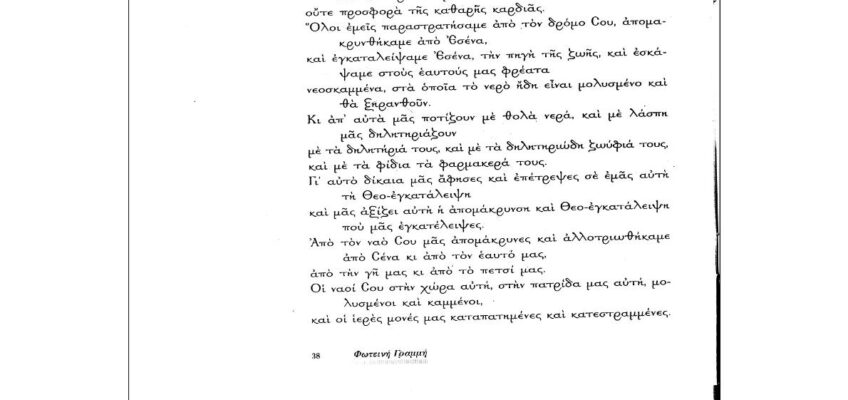 οὔτε προσφορὰ τῆς καθαρῆς καρδιᾶς.
Ὅλοι ἐμεῖς παραστρατήσαμε ἀπὸ τὸν δρόμο Σου, ἀπομα-
κρυνθήκαμε ἀπὸ Ἐσένα,
καὶ ἐγκαταλείψαμε Ἐσένα, τὴν πηγὴ τῆς ζωῆς, καὶ ἐσκά-
ψαμε στοὺς ἑαυτούς μας φρέατα
νεοσκαμμένα, στὰ ὁποῖα τὸ νερὸ ἤδη εἶναι μολυσμένο καὶ
θὰ ξηρανθοῦν.
Κι ἀπ' αὐτὰ μᾶς ποτίζουν μὲ θολὰ νερά, καὶ μὲ λάσπη
μᾶς δηλητηριάζουν
μὲ τὰ δηλητήριά τους, καὶ μὲ τὰ δηλητηριώδη ζωΰφιά τους,
καὶ μὲ τὰ φίδια τὰ φαρμακερά τους.
Γι' αὐτὸ δίκαια μᾶς ἄφησες καὶ ἐπέτρεψες σὲ ἐμᾶς αὐτὴ
τὴ Θεο-ἐγκατάλειψη
καὶ μᾶς ἀξίζει αὐτὴ ἡ ἀπομάκρυνση καὶ Θεο-ἐγκατάλειψη
ποὺ μᾶς ἐγκατέλειψες.
Ἀπὸ τὸν ναὸ Σου μᾶς ἀπομάκρυνες καὶ ἀλλοτριωθήκαμε
ἀπὸ Σένα κι ἀπὸ τὸν ἑαυτό μας,
ἀπὸ τὴν γῆ μας κι ἀπὸ τὸ πετσί μας.
Οἱ ναοί Σου στὴν χώρα αὐτή, στὴν πατρίδα μας αὐτή, μο-
λυσμένοι καὶ καμμένοι,
καὶ οἱ ἱερὲς μονές μας καταπατημένες καὶ κατεστραμμένες.
38 Φωτεινή Γραμμή